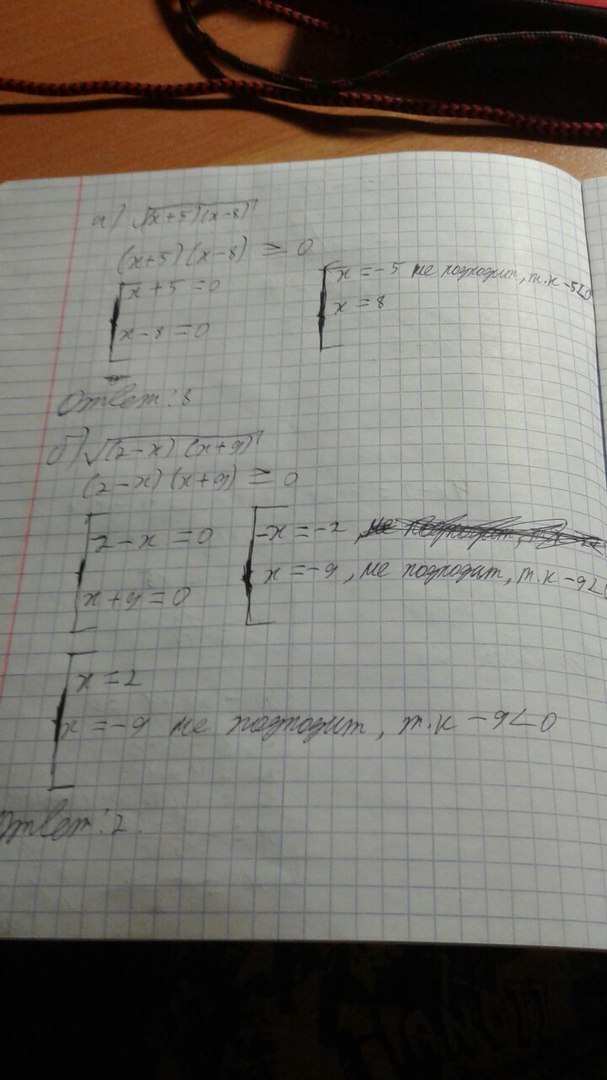 а) √(x+5)(x-8)
(x+5)(x-8) ≥ 0
x+5=0
x-8=0
x=-5 не подходит, т.к -5<0
x=8
Ответ: 8
б) √(2-x)(x+9)
(2-x)(x+9) ≥ 0
2-x=0
x+9=0
-x=-2
x=-9, не подходит, т.к -9<0
x=2
x=-9 не подходит, т.к -9<0
Ответ: 2.